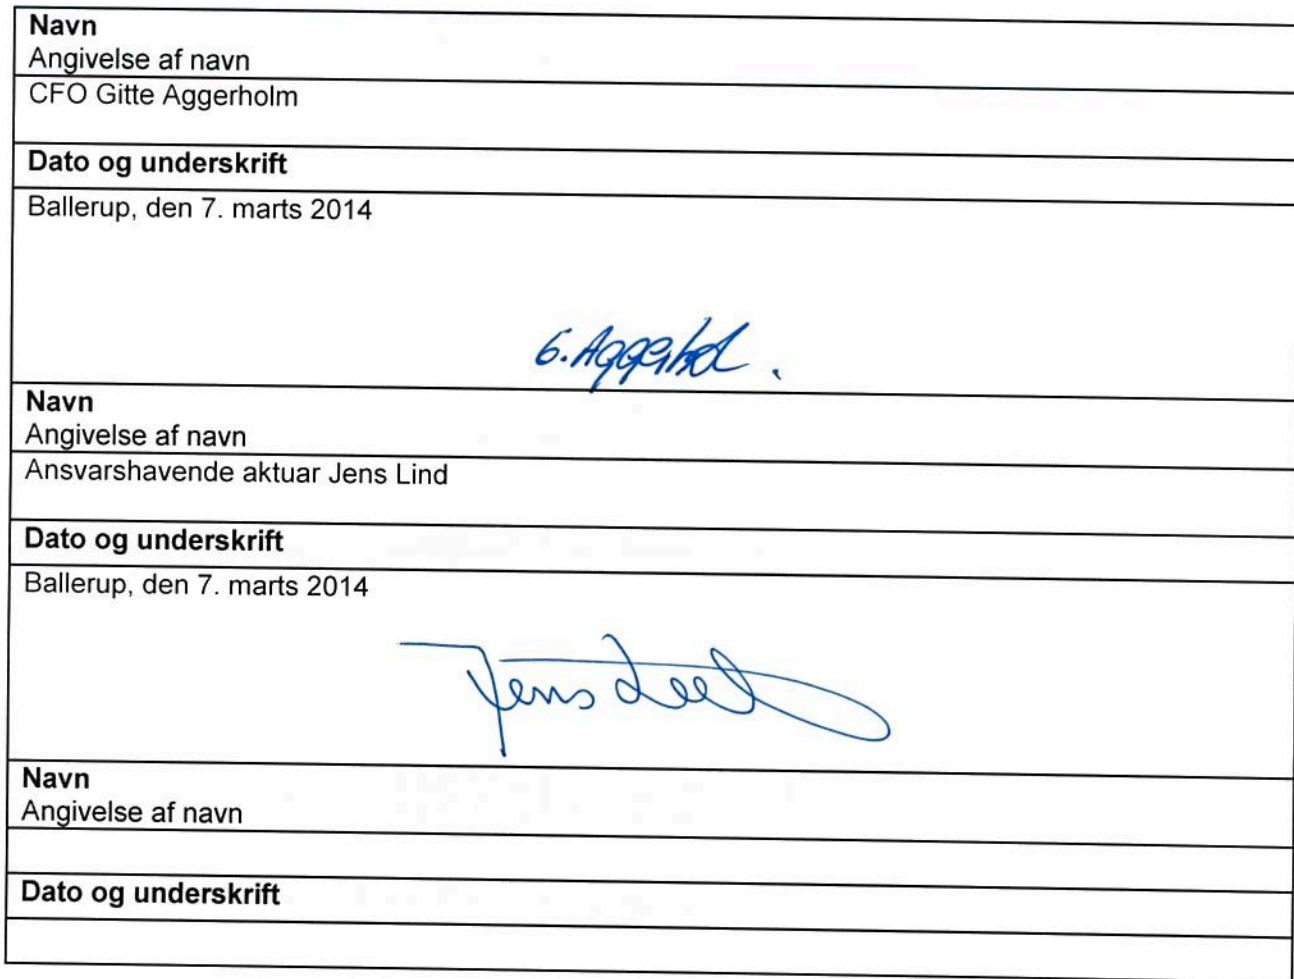 Navn
Angivelse af navn
CFO Gitte Aggerholm
Dato og underskrift
Ballerup, den 7. marts 2014
G. Aggerhol.
Navn
Angivelse af navn
Ansvarshavende aktuar Jens Lind
Dato og underskrift
Ballerup, den 7. marts 2014
Jens
Navn
Angivelse af navn
Dato og underskrift